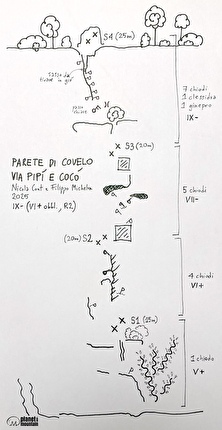 S4 (25m)
SASSO DA
TIRARE IN GIÙ
7 chiodi
1 clessidra
1 ginepro
IX-
S3 (20m)
PARETE DI COVELO
VIA PIPÍ E COCÓ
Nicola Cont e Filippo Michelon
2025
IX- (VI+ obbl., R2)
5 chiodi
VII-
(20m) S2
4 chiodi
VI+
S1 (25m)
1 chiodo
V+
planet
mountain